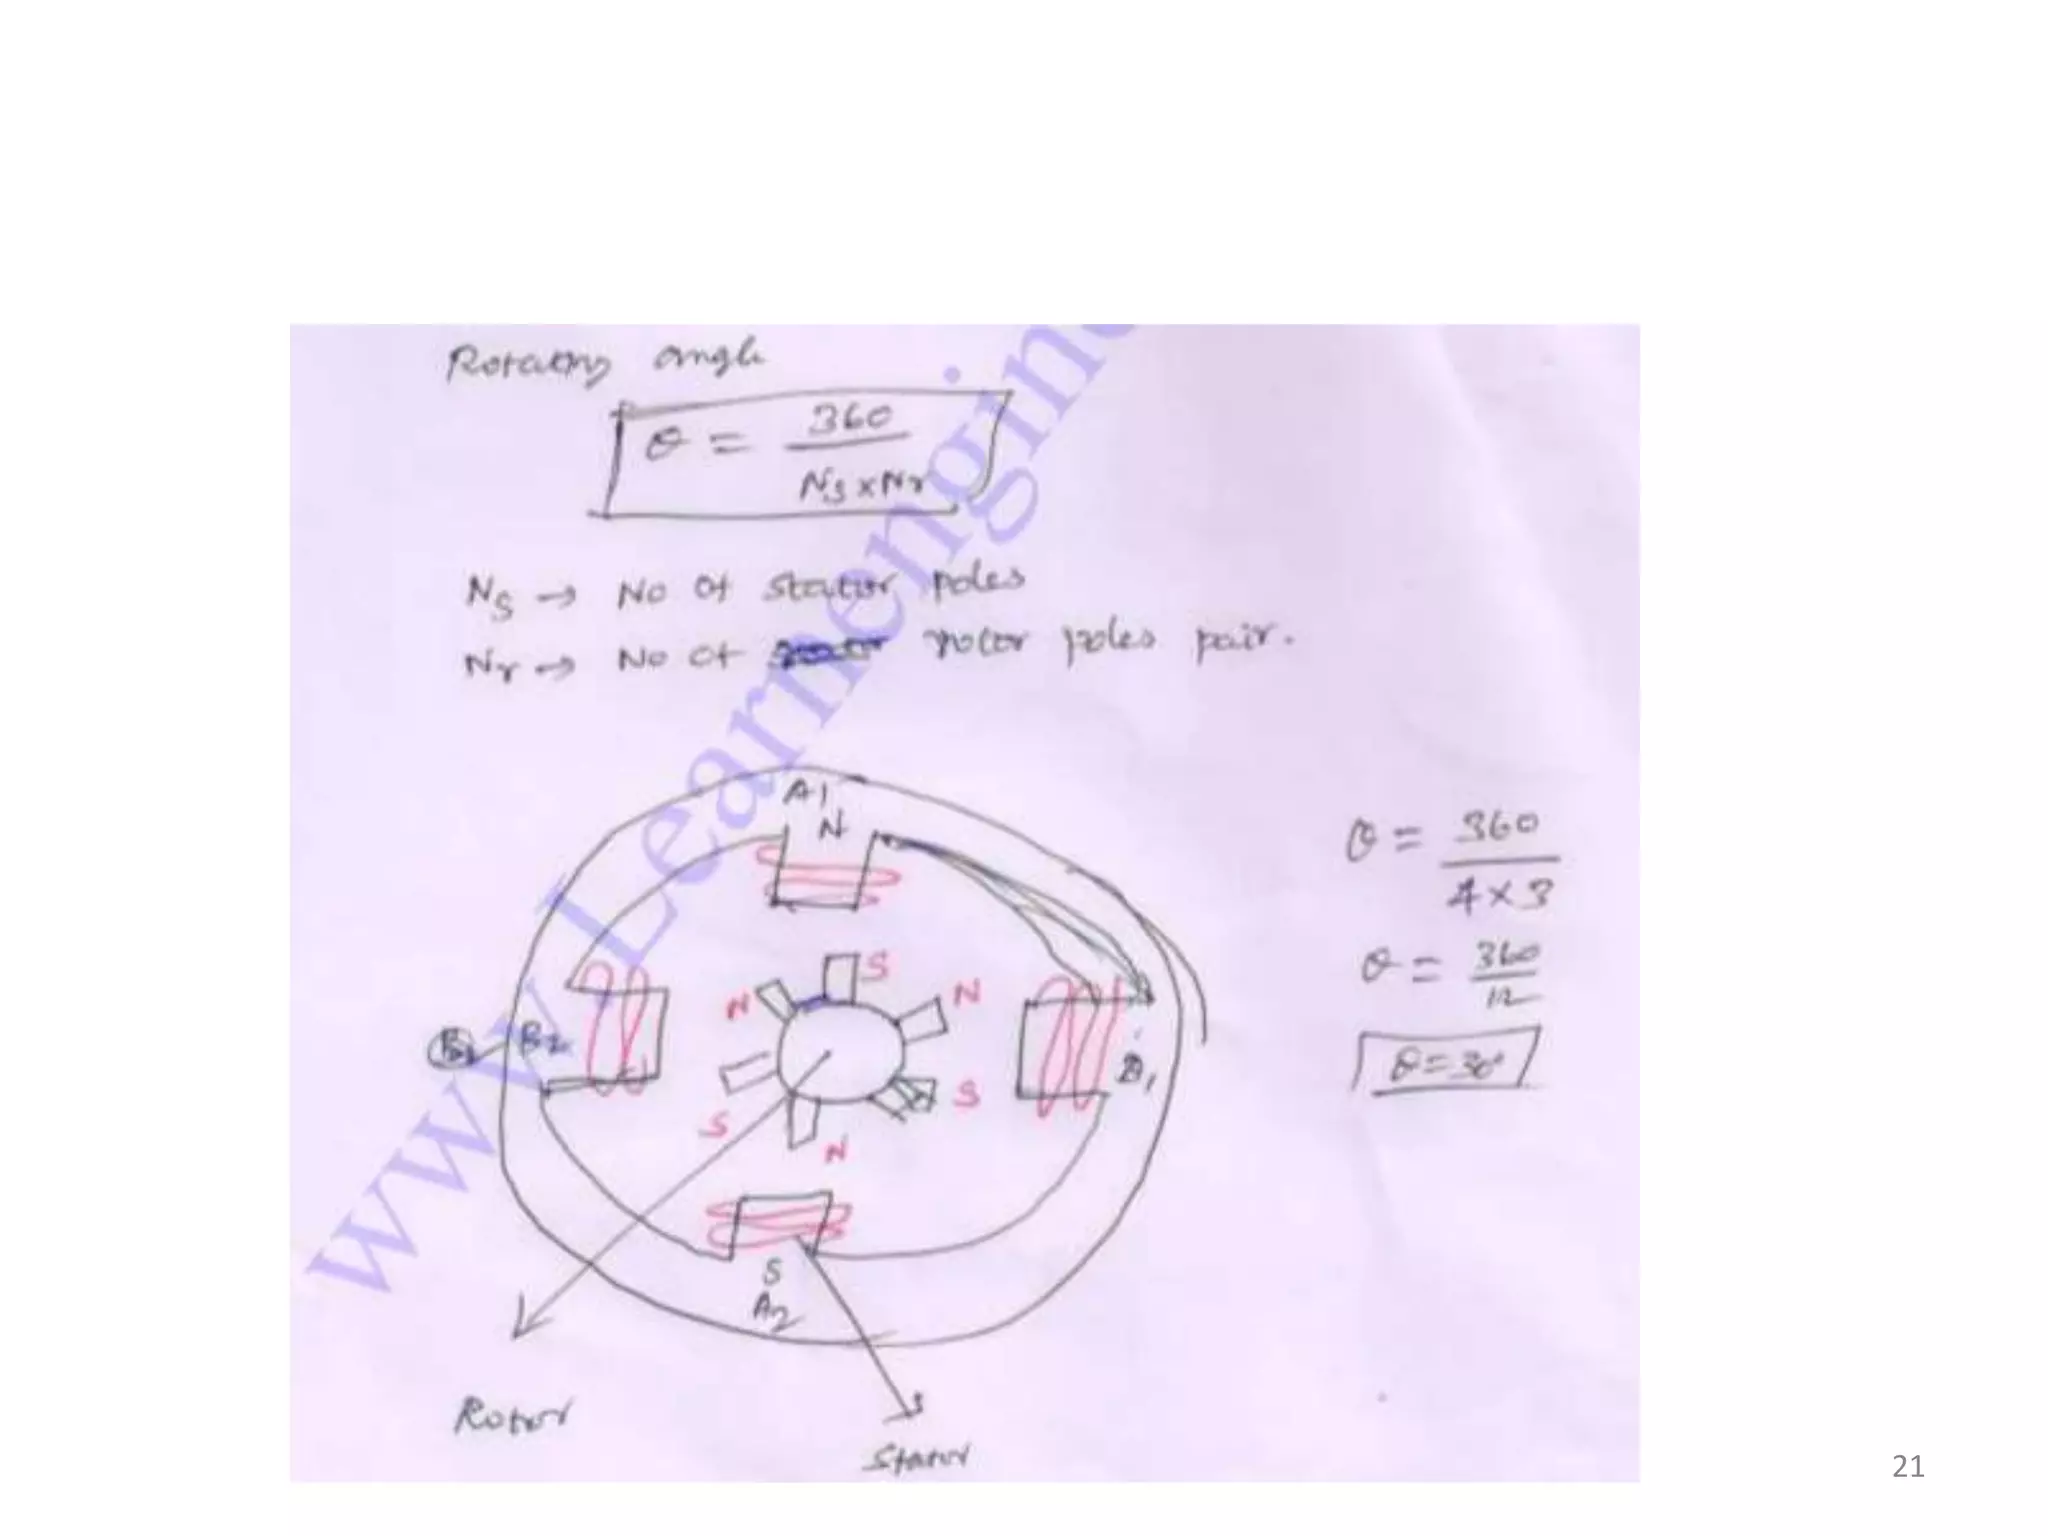 Rotating angle
θ = 360 / Ns × Nr
Ns → No of stator poles
Nr → No of rotor poles pair.
A1
N
S
N
N
S
S
N
B2
B1
S
A2
Rotor
Stator
θ = 360 / 4 × 3
θ = 360 / 12
θ = 30°
www.Learnengine
21